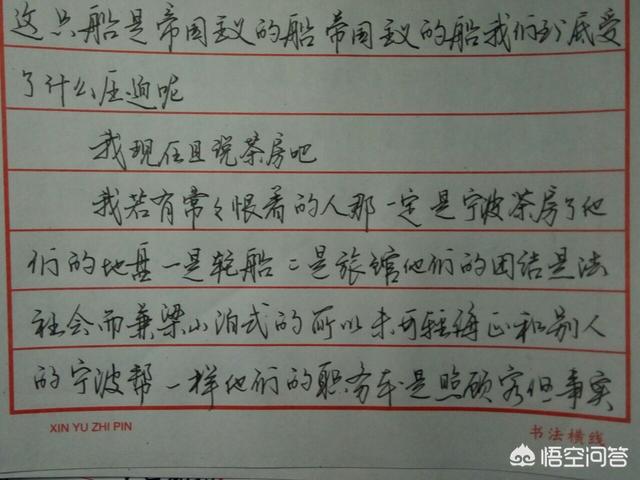 这只船是帝国主义的船帝国主义的船我们到底受
了什么压迫呢
我现在且说茶房吧
我若有常々恨着的人那一定是宁波茶房了他
们的地盘一是轮船二是旅馆他们的团结是法
社会而兼梁山泊式的所以未可轻侮正和别人
的宁波帮一样他们的职务本是照顾客但事实
XIN YU ZHI PIN
书法横线
悟空问答